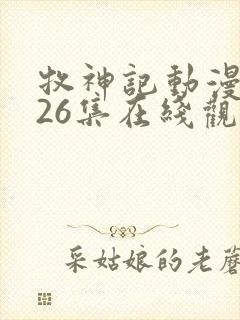 牧神記動漫
26集在綫觀
采姑娘的老蘑